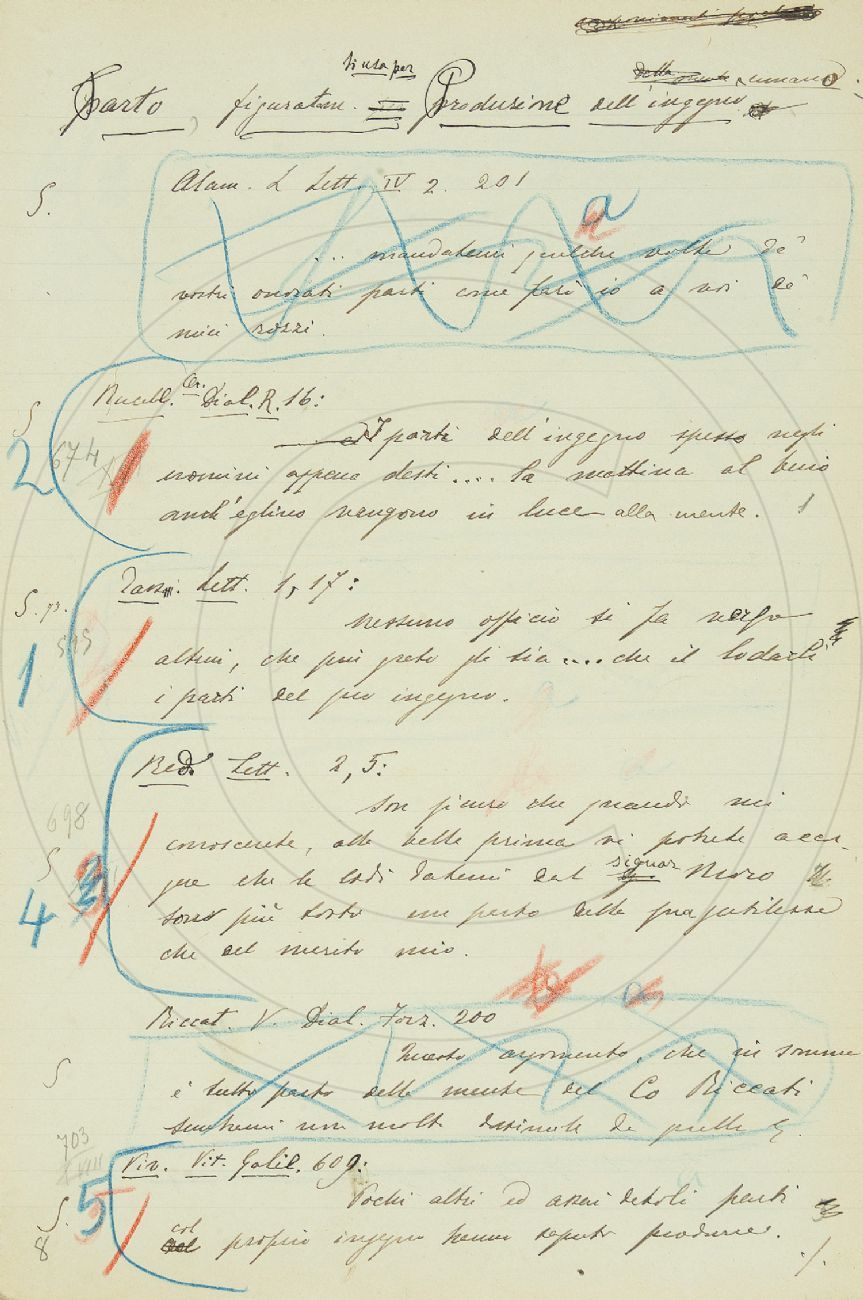 si usa per
della mente umana
Parto, figuratam. Produzione dell'ingegno
S.
Alam. L. Lett. IV 2. 201
a
... mandatemi qualche volta de'
vostri onorati parti come farò io a voi de'
miei rozzi.
S
2
674
Rucell. Or. Dial. R. 16:
I parti dell'ingegno spesso negli
uomini appena desti .... la mattina al buio
anch'eglino vengono in luce alla mente.
S. p.
1
595
Tass. Lett. 1, 17:
Nessuno officio si fa verso
altrui, che più grato gli sia .... che il lodarli
i parti del suo ingegno.
698
S
4
Red. Lett. 2, 5:
Son sicuro che quando mi
conoscerete, alla bella prima vi potrete accor-
gere che le lodi datemi dal signor Moro
sono più tosto un parto della sua gentilezza
che del merito mio.
S
Riccat. V. Dial. Forz. 200
Questo argomento, che in somma
è tutto parto della mente del Co Riccati
sembrami non molto dissimile da quello
703
XVIII
S.
8
5
Viv. Vit. Galil. 609:
Pochi altri ed assai deboli parti
col proprio ingegno hanno saputo produrre.